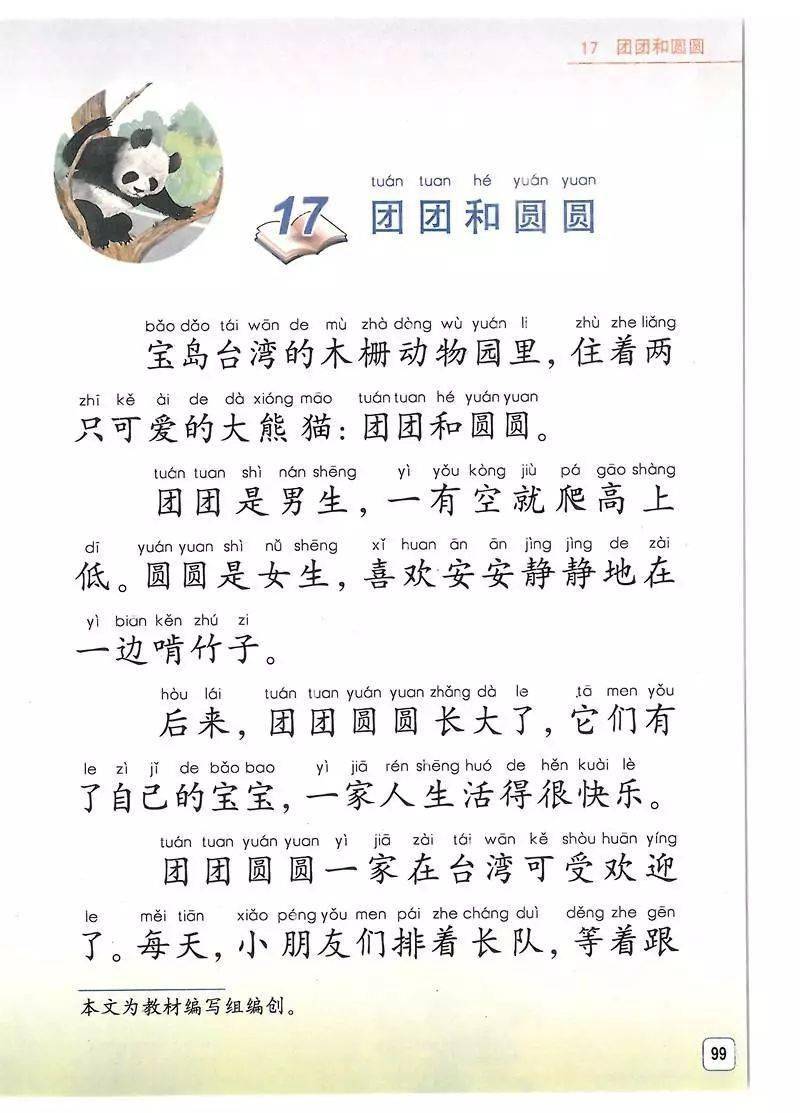 17 团团和圆圆
tuán tuan hé yuán yuan
17 团团和圆圆
bǎo dǎo tái wān de mù zhà dòng wù yuán li zhù zhe liǎng
宝岛台湾的木栅动物园里，住着两
zhī kě ài de dà xióng māo tuán tuan hé yuán yuan
只可爱的大熊猫：团团和圆圆。
tuán tuan shì nán shēng yì yǒu kòng jiù pá gāo shàng
团团是男生，一有空就爬高上
dī yuán yuan shì nǚ shēng xǐ huan ān ān jìng jìng de zài
低。圆圆是女生，喜欢安安静静地在
yì biān kěn zhú zi
一边啃竹子。
hòu lái tuán tuan yuán yuan zhǎng dà le tā men yǒu
后来，团团圆圆长大了，它们有
le zì jǐ de bǎo bao yì jiā rén shēng huó de hěn kuài lè
了自己的宝宝，一家人生活得很快乐。
tuán tuan yuán yuan yì jiā zài tái wān kě shòu huān yíng
团团圆圆一家在台湾可受欢迎
le měi tiān xiǎo péng yǒu men pái zhe cháng duì děng zhe gēn
了。每天，小朋友们排着长队，等着跟
本文为教材编写组编创。
99